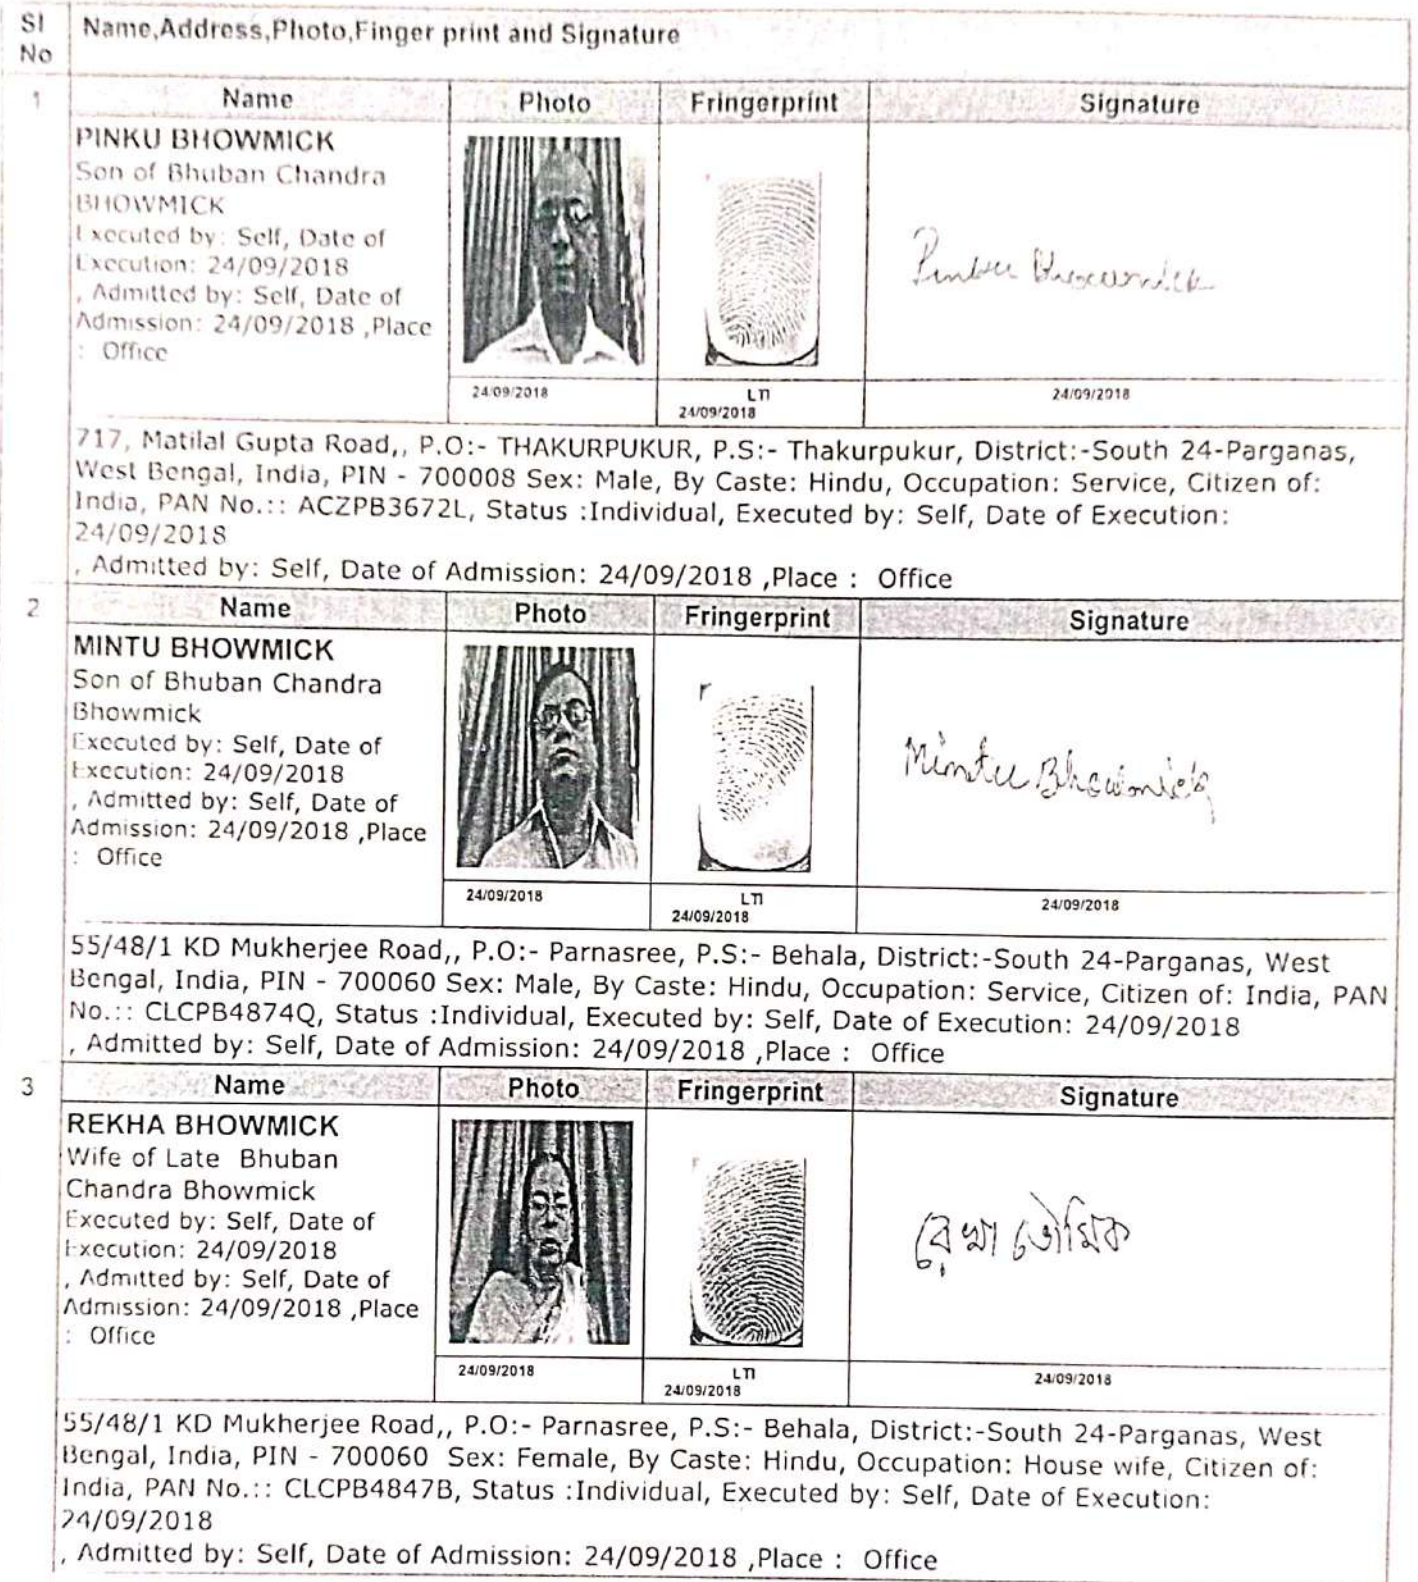 Sl
No
Name,Address,Photo,Finger print and Signature
1
Name
Photo
Fringerprint
Signature
PINKU BHOWMICK
Son of Bhuban Chandra
BHOWMICK
Executed by: Self, Date of
Execution: 24/09/2018
, Admitted by: Self, Date of
Admission: 24/09/2018 ,Place
: Office
Pinku Bhowmick
24/09/2018
LTI
24/09/2018
24/09/2018
717, Matilal Gupta Road,, P.O:- THAKURPUKUR, P.S:- Thakurpukur, District:-South 24-Parganas,
West Bengal, India, PIN - 700008 Sex: Male, By Caste: Hindu, Occupation: Service, Citizen of:
India, PAN No.:: ACZPB3672L, Status :Individual, Executed by: Self, Date of Execution:
24/09/2018
, Admitted by: Self, Date of Admission: 24/09/2018 ,Place : Office
2
Name
Photo
Fringerprint
Signature
MINTU BHOWMICK
Son of Bhuban Chandra
Bhowmick
Executed by: Self, Date of
Execution: 24/09/2018
, Admitted by: Self, Date of
Admission: 24/09/2018 ,Place
: Office
Mintu Bhowmick
24/09/2018
LTI
24/09/2018
24/09/2018
55/48/1 KD Mukherjee Road,, P.O:- Parnasree, P.S:- Behala, District:-South 24-Parganas, West
Bengal, India, PIN - 700060 Sex: Male, By Caste: Hindu, Occupation: Service, Citizen of: India, PAN
No.:: CLCPB4874Q, Status :Individual, Executed by: Self, Date of Execution: 24/09/2018
, Admitted by: Self, Date of Admission: 24/09/2018 ,Place : Office
3
Name
Photo
Fringerprint
Signature
REKHA BHOWMICK
Wife of Late Bhuban
Chandra Bhowmick
Executed by: Self, Date of
Execution: 24/09/2018
, Admitted by: Self, Date of
Admission: 24/09/2018 ,Place
: Office
রেখা ভৌমিক
24/09/2018
LTI
24/09/2018
24/09/2018
55/48/1 KD Mukherjee Road,, P.O:- Parnasree, P.S:- Behala, District:-South 24-Parganas, West
Bengal, India, PIN - 700060 Sex: Female, By Caste: Hindu, Occupation: House wife, Citizen of:
India, PAN No.:: CLCPB4847B, Status :Individual, Executed by: Self, Date of Execution:
24/09/2018
, Admitted by: Self, Date of Admission: 24/09/2018 ,Place : Office